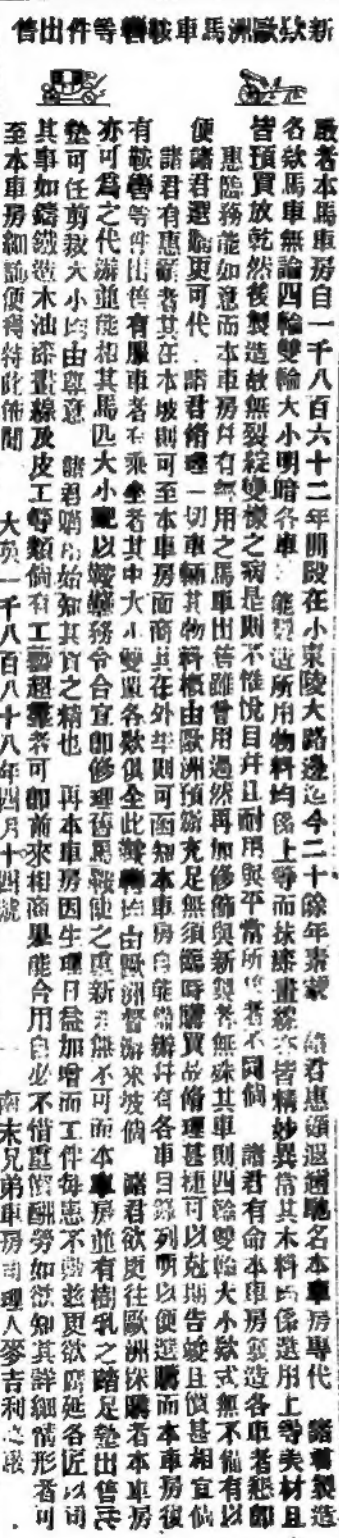 新欵歐洲馬車鞍轡等件出售
啟者本馬車房自一千八百六十二年開設在小東陵大路邊迄今二十餘年素蒙 諸君惠顧遐邇馳名本車房專代 諸君製造
各欵馬車無論四輪雙輪大小明暗各車 能製造所用物料均係上等而抹漆畫線亦皆精妙異常其木料均係選用上等美材且
皆預買放乾然後製造故無裂綻變樣之病是則不惟悅目并且耐用與平常所 者不同倘 諸君有命本車房製造各車者懇即
惠臨務能如意而本車房并有 用之馬車出售雖曾用過然再加修飾與新製者無殊其車則四輪雙輪大小欵式無不備有以
便諸君選 更可代 諸君脩理一切車輛其物料概由歐洲預辦充足無須臨時購買故脩理甚捷可以尅期告竣且價甚相宜倘
諸君有惠顧者其在本坡則可至本車房面商其在外埠則可函知本車房自能 辦并有各車目錄列明以便選購而本車房復
有鞍轡等件出售有服車者有乘坐者其中大小雙單各欵俱全此鞍轡均由歐洲督辦來坡倘 諸君欲更往歐洲採購者本車房
亦可為之代辦並能相其馬匹大小配以鞍轡務令合宜即修理舊馬鞍使之更新 無不可而本車房並有樹乳之踏足墊出售
墊可任剪裁大小均由尊意 諸君 始知其貨之精也 再本車房因生理日益加增而工件每患不 茲更欲 延各匠以司
其事如鑄鐵造木油漆畫線及皮工等類倘有工藝超羣者可即前來相商果能合用自必不惜重價酬勞如欲知其詳細情形者可
至本車房細詢便得特此佈聞 大英一千八百八十八年四月十四號 南末兄弟車房司理人麥吉利 啟